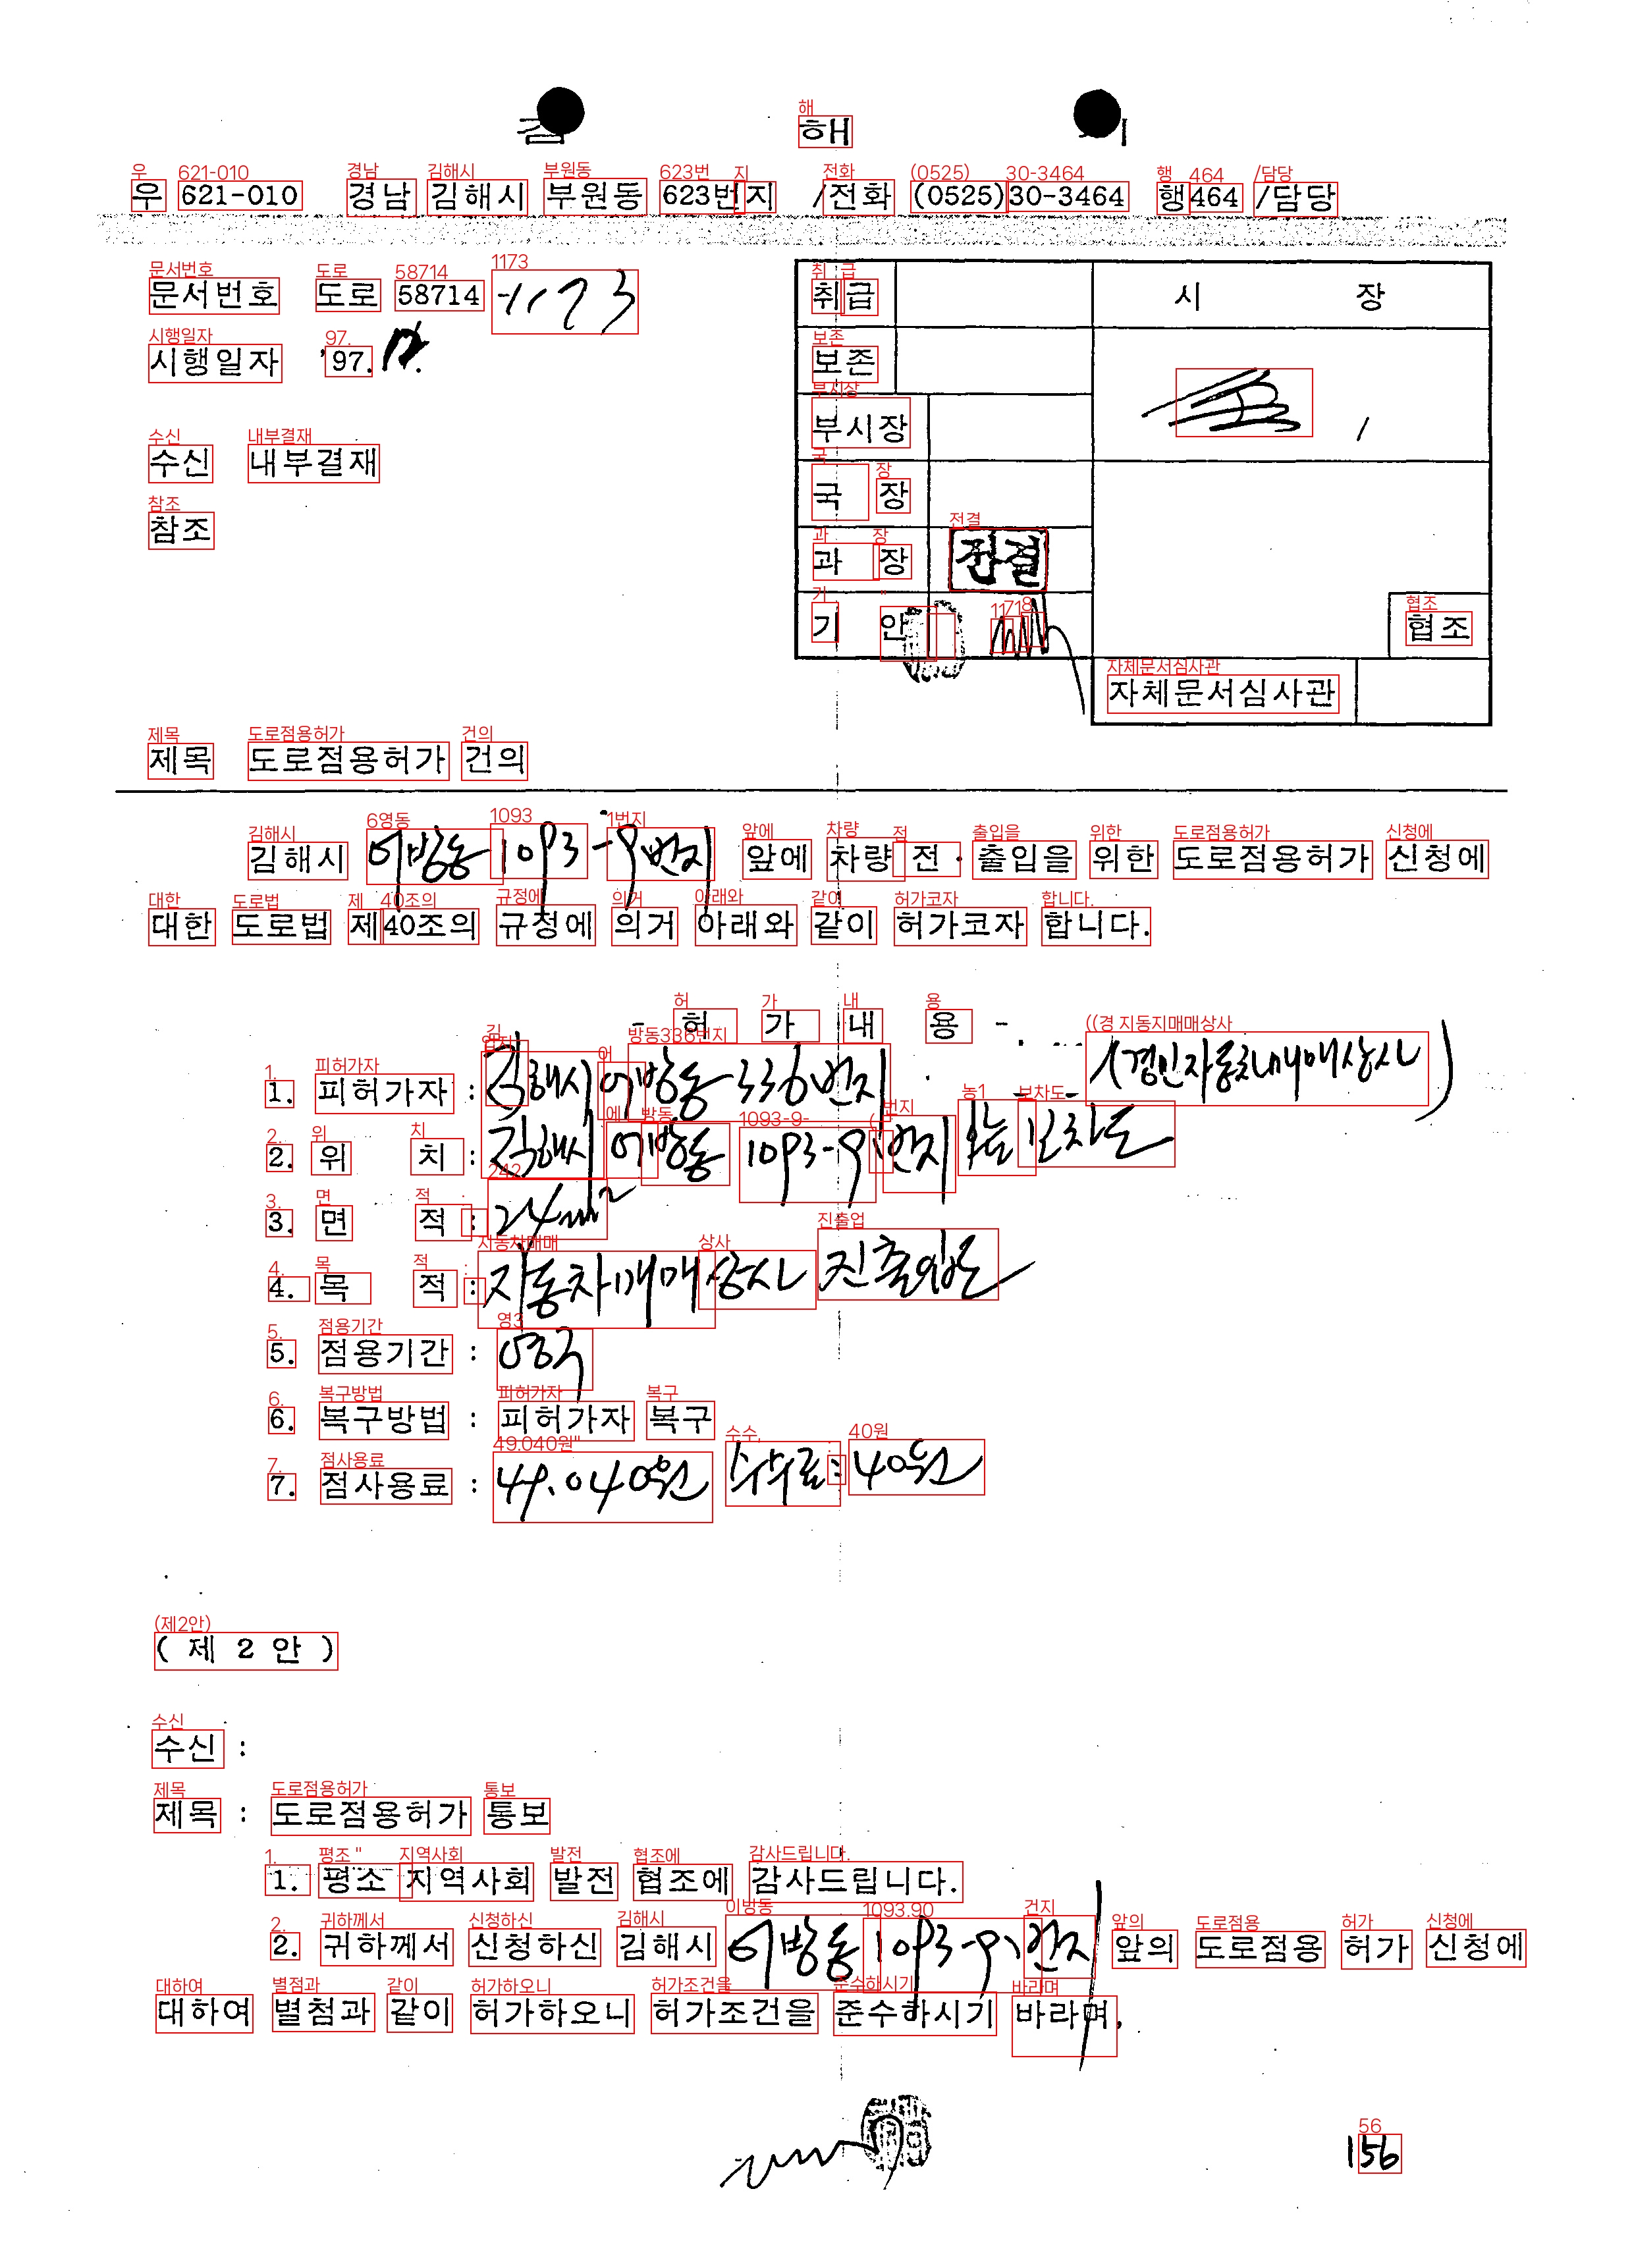 김 해 시
우 621-010 경남 김해시 부원동 623번지 /전화 (0525)30-3464 행464 /담당
문서번호 도로 58714-1173
시행일자 '97.
수신 내부결재
참조
취급 시 장
보존
부시장
국 장
과 장 전결
기 안
협조
자체문서심사관
제목 도로점용허가 건의
김해시 어방동 1093-9번지 앞에 차량 전· 출입을 위한 도로점용허가 신청에
대한 도로법 제40조의 규정에 의거 아래와 같이 허가코자 합니다.
- 허 가 내 용 -
1. 피허가자 : 김해시 어방동 336번지 (경민자동차매매상사)
2. 위 치 : 김해시 어방동 1093-9번지 보차도
3. 면 적 : 24m²
4. 목 적 : 자동차매매상사 진출입도
5. 점용기간 : 영구
6. 복구방법 : 피허가자 복구
7. 점사용료 : 49.040원 수수료: 400원
( 제 2 안 )
수신 :
제목 : 도로점용허가 통보
1. 평소 지역사회 발전 협조에 감사드립니다.
2. 귀하께서 신청하신 김해시 어방동 1093-9번지 앞의 도로점용 허가 신청에
대하여 별첨과 같이 허가하오니 허가조건을 준수하시기 바라며,
156